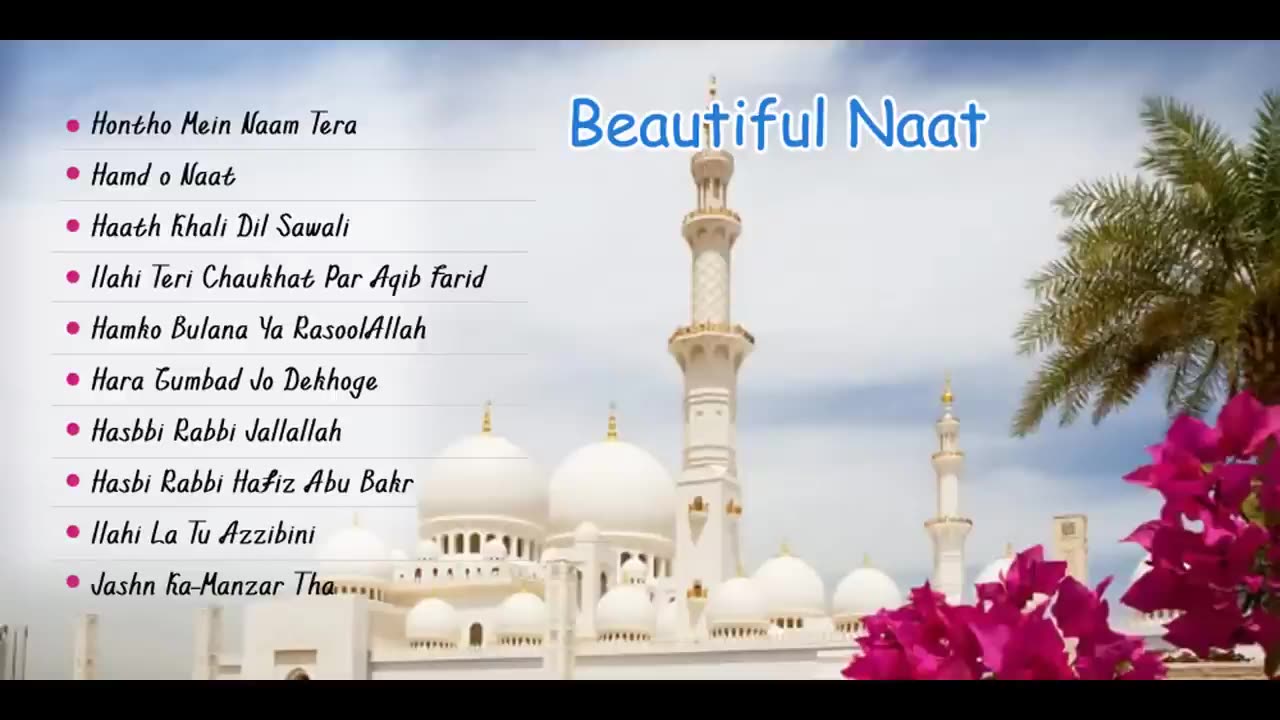 Beautiful Naat
Hontho Mein Naam Tera
Hamd o Naat
Haath Khali Dil Sawali
Ilahi Teri Chaukhat Par Aqib Farid
Hamko Bulana Ya RasoolAllah
Hara Gumbad Jo Dekhoge
Hasbbi Rabbi Jallallah
Hasbi Rabbi Hafiz Abu Bakr
Ilahi La Tu Azzibini
Jashn Ka-Manzar Tha